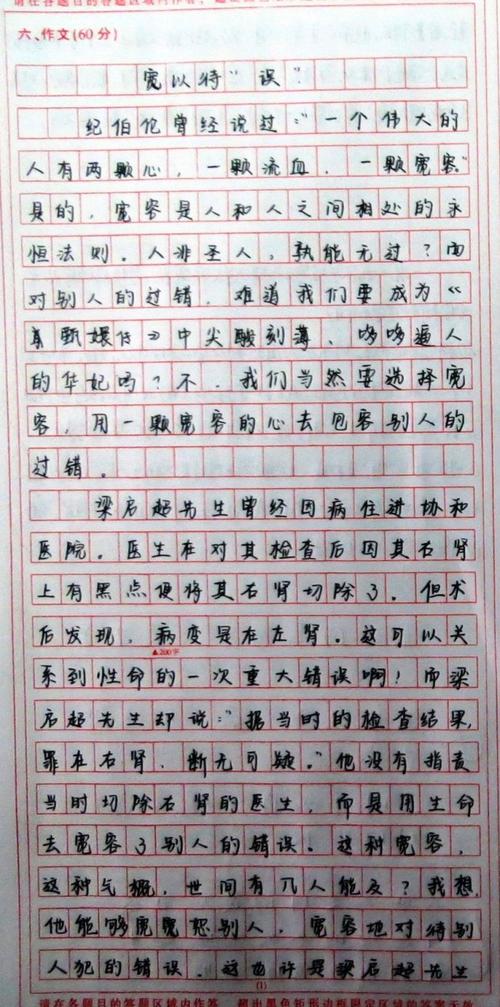 六、作文(60分)
宽以待“误”
纪伯伦曾经说过:“一个伟大的
人有两颗心,一颗流血,一颗宽容”
是的,宽容是人和人之间相处的永
恒法则。人非圣人,孰能无过?面
对别人的过错,难道我们要成为《
甄嬛传》中尖酸刻薄、哆哆逼人
的华妃吗?不,我们当然要选择宽
容,用一颗宽容的心去包容别人的
过错。
梁启超先生曾经因病住进协和
医院。医生在对其检查后因其右肾
上有黑点便将其右肾切除了。但术
后发现,病变是在左肾。这可以关
▲200字
系到性命的一次重大错误啊!而梁
启超先生却说:“据当时的检查结果,
罪在右肾,断无可疑。”他没有指责
当时切除右肾的医生,而是用生命
去宽容了别人的错误。这种宽容,
这种气概,世间有几人能及?我想,
他能够宽宽恕别人,宽容地对待别
人犯的错误,这也许是梁启超先生
(1)
请在各题目的答题区域内作答,超出黑色矩形边框限定区域的答案无效